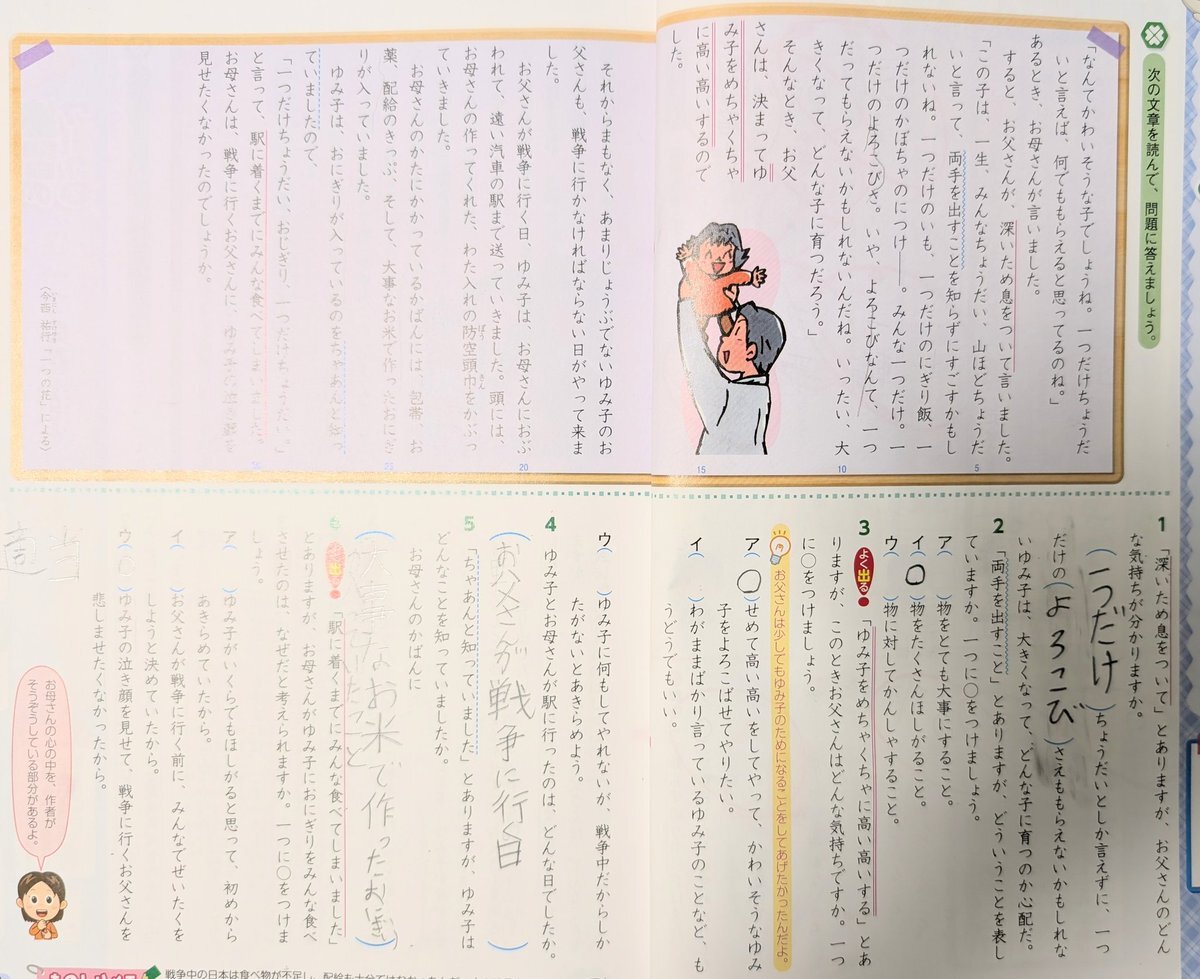 次の文章を読んで、問題に答えましょう。
「なんてかわいそうな子でしょうね。一つだけちょうだ
いと言えば、何でももらえると思ってるのね。」
あるとき、お母さんが言いました。
すると、お父さんが、深いため息をついて言いました。
「この子は、一生、みんなちょうだい、山ほどちょうだ
いと言って、両手を出すことを知らずにすごすかもし
れないね。一つだけのいも、一つだけのにぎり飯、一
つだけのかぼちゃのにつけ――。みんな一つだけ。一
つだけのよろこびさ。いや、よろこびなんて、一つ
だってもらえないかもしれないんだね。いったい、大
きくなって、どんな子に育つだろう。」
そんなとき、お父
さんは、決まってゆ
み子をめちゃくちゃ
に高い高いするので
した。
5
10
15
それからまもなく、あまりじょうぶでないゆみ子のお
父さんも、戦争に行かなければならない日がやって来ま
した。
お父さんが戦争に行く日、ゆみ子は、お母さんにおぶ
われて、遠い汽車の駅まで送っていきました。頭には、
お母さんの作ってくれた、わた入れの防空頭巾をかぶっ
ていきました。
お母さんのかたにかかっているかばんには、包帯、お
薬、配給のきっぷ、そして、大事なお米で作ったおにぎ
りが入っていました。
ゆみ子は、おにぎりが入っているのをちゃあんと知っ
ていましたので、
「一つだけちょうだい、おじぎり、一つだけちょうだい。」
と言って、駅に着くまでにみんな食べてしまいました。
お母さんは、戦争に行くお父さんに、ゆみ子の泣き顔を
見せたくなかったのでしょうか。
〈今西 祐行「一つの花」による〉
20
25
1 「深いため息をついて」とありますが、お父さんのどん
な気持ちが分かりますか。
(一つだけ)ちょうだいとしか言えずに、一つ
だけの(よろこび)さえももらえないかもしれな
いゆみ子は、大きくなって、どんな子に育つのか心配だ。
2 「両手を出すこと」とありますが、どういうことを表し
ていますか。一つに○をつけましょう。
ア( )物をとても大事にすること。
イ(○)物をたくさんほしがること。
ウ( )物に対してかんしゃすること。
3 よく出る 「ゆみ子をめちゃくちゃに高い高いする」とあ
りますが、このときお父さんはどんな気持ちですか。一つ
に○をつけましょう。
お父さんは少しでもゆみ子のためになることをしてあげたかったんだよ。
ア(○)せめて高い高いをしてやって、かわいそうなゆみ
子をよろこばせてやりたい。
イ( )わがままばかり言っているゆみ子のことなど、も
うどうでもいい。
ウ( )ゆみ子に何もしてやれないが、戦争中だからしか
たがないとあきらめよう。
4 ゆみ子とお母さんが駅に行ったのは、どんな日でしたか。
(お父さんが戦争に行く日)
5 「ちゃあんと知っていました」とありますが、ゆみ子は
どんなことを知っていましたか。
お母さんのかばんに
(大事なお米で作ったお
6 よく出る 「駅に着くまでにみんな食べてしまいました」
とありますが、お母さんがゆみ子におにぎりをみんな食べ
させたのは、なぜだと考えられますか。一つに○をつけま
しょう。
ア( )ゆみ子がいくらでもほしがると思って、初めから
あきらめていたから。
イ( )お父さんが戦争に行く前に、みんなでぜいたくを
しようと決めていたから。
ウ(○)ゆみ子の泣き顔を見せて、戦争に行くお父さんを
悲しませたくなかったから。
お母さんの心の中を、作者が
そうぞうしている部分があるよ。
戦争中の日本は食べ物が不足し、配給も十分ではなかった